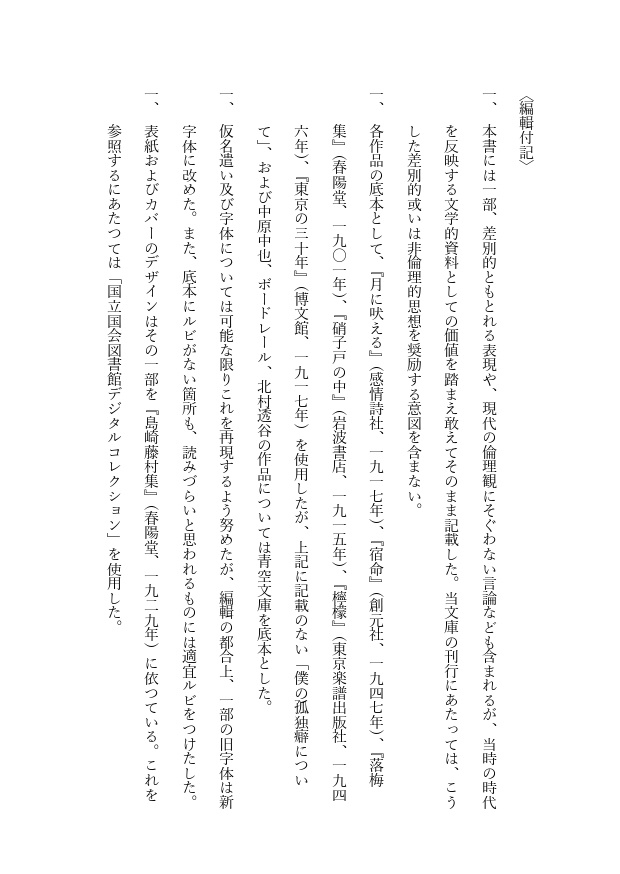 〈編輯付記〉
一、本書には一部、差別的ともとれる表現や、現代の倫理観にそぐわない言論なども含まれるが、当時の時代
を反映する文学的資料としての価値を踏まえ敢えてそのまま記載した。当文庫の刊行にあたっては、こう
した差別的或いは非倫理的思想を奨励する意図を含まない。
一、各作品の底本として、『月に吠える』（感情詩社、一九一七年）、『宿命』（創元社、一九四七年）、『落梅
集』（春陽堂、一九〇一年）、『硝子戸の中』（岩波書店、一九一五年）、『檸檬』（東京楽譜出版社、一九四
六年）、『東京の三十年』（博文館、一九一七年）を使用したが、上記に記載のない「僕の孤独癖につい
て」、および中原中也、ボードレール、北村透谷の作品については青空文庫を底本とした。
一、仮名遣い及び字体については可能な限りこれを再現するよう努めたが、編輯の都合上、一部の旧字体は新
字体に改めた。また、底本にルビがない箇所も、読みづらいと思われるものには適宜ルビをつけたした。
一、表紙およびカバーのデザインはその一部を『島崎藤村集』（春陽堂、一九二九年）に依つている。これを
参照するにあたつては「国立国会図書館デジタルコレクション」を使用した。